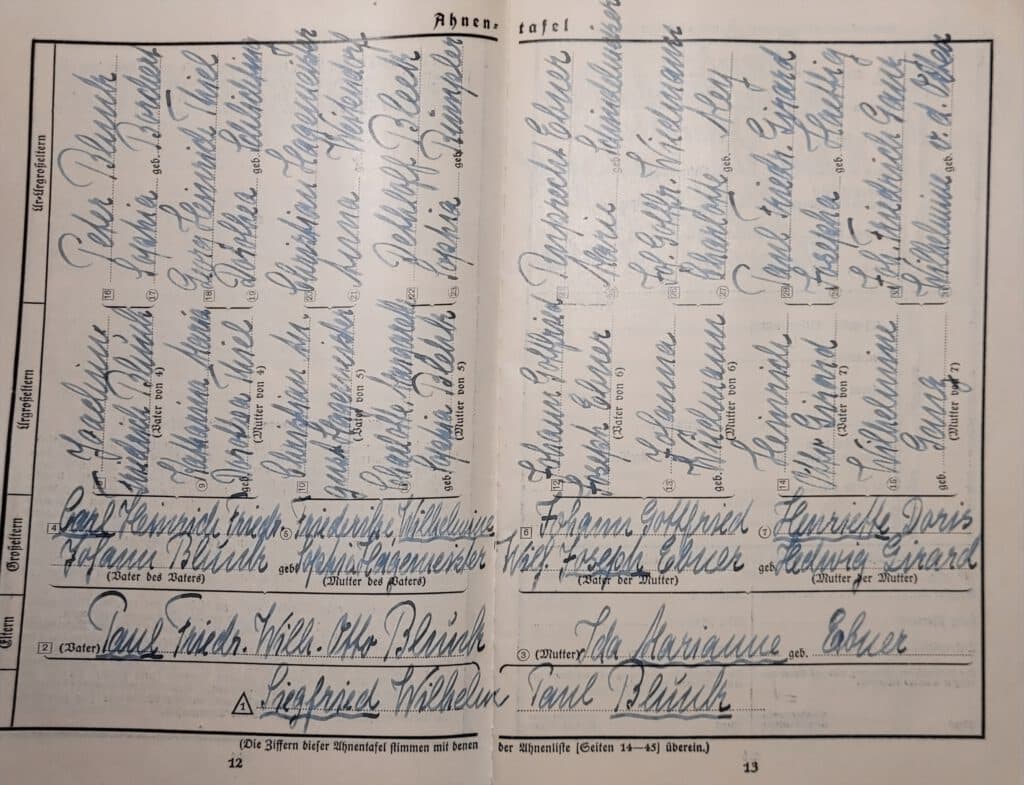 Ahnentafel
Ur-Urgroßeltern
16 Peter Blunk
17 Sophia geb.
18 Heinrich Thiel
19 Dorothea geb.
20 Christian Hagemeister
21 Anna geb.
22 Bleek
23 Sophia geb. Dümpler
Ebner
25 Maria geb.
26 Joh. Gottfr. Wiedmann
27 Charlotte geb. Aley
28 Paul Friedr. Girard
Josepha geb. Hartig
30 Joh. Friedrich Ganz
31 Wilhelmine v. d. Osten
Urgroßeltern
Joachim
Friedrich Blunk
(Vater von 4)
9
geb. Dorothea Thiel
(Mutter von 4)
10 Christian
Hagemeister
(Vater von 5)
Charlotte
geb. Sophia Bleek
(Mutter von 5)
12 Johann Gottfried
Joseph Ebner
(Vater von 6)
13 Johanna
geb. Wiedmann
(Mutter von 6)
14 Heinrich
Otto Girard
(Vater von 7)
15 Wilhelmine
geb. Ganz
(Mutter von 7)
Großeltern
4 Carl Heinrich Friedr.
Johann Blunk
(Vater des Vaters)
5 Friederike Wilhelmine
geb. Sophia Hagemeister
(Mutter des Vaters)
6 Johann Gottfried
Wig. Joseph Ebner
(Vater der Mutter)
7 Henriette Doris
geb. Hedwig Girard
(Mutter der Mutter)
Eltern
2 (Vater) Paul Friedr. Wilh. Otto Blunk
3 (Mutter) Ida Marianne geb. Ebner
1 Siegfried Wilhelm Paul Blunk
(Die Ziffern dieser Ahnentafel stimmen mit denen der Ahnenliste [Seiten 14—45] überein.)
12
13